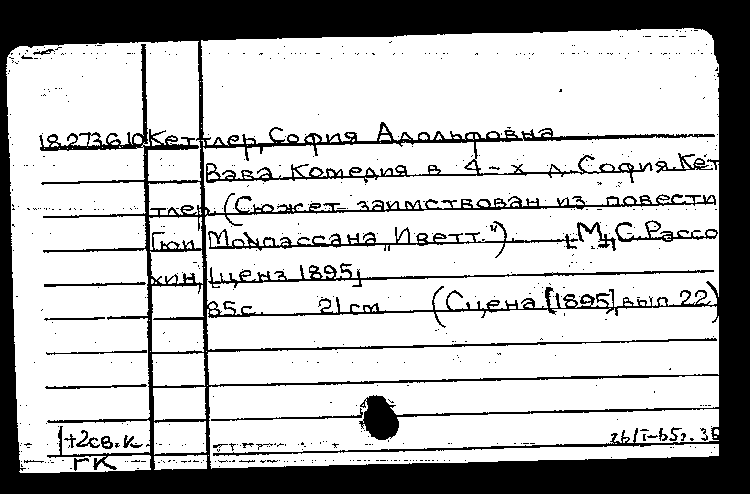 18.273.6.10 Кеттлер, София Адольфовна
Вава. Комедия в 4-х д. София Кет
тлер. (Сюжет заимствован из повести
Гюи Мопассана „Иветт"). [М.] С. Рассо
хин, [ценз 1895]
85 с. 21 см (Сцена [1895] вып. 22)
1+2св. к
ГК